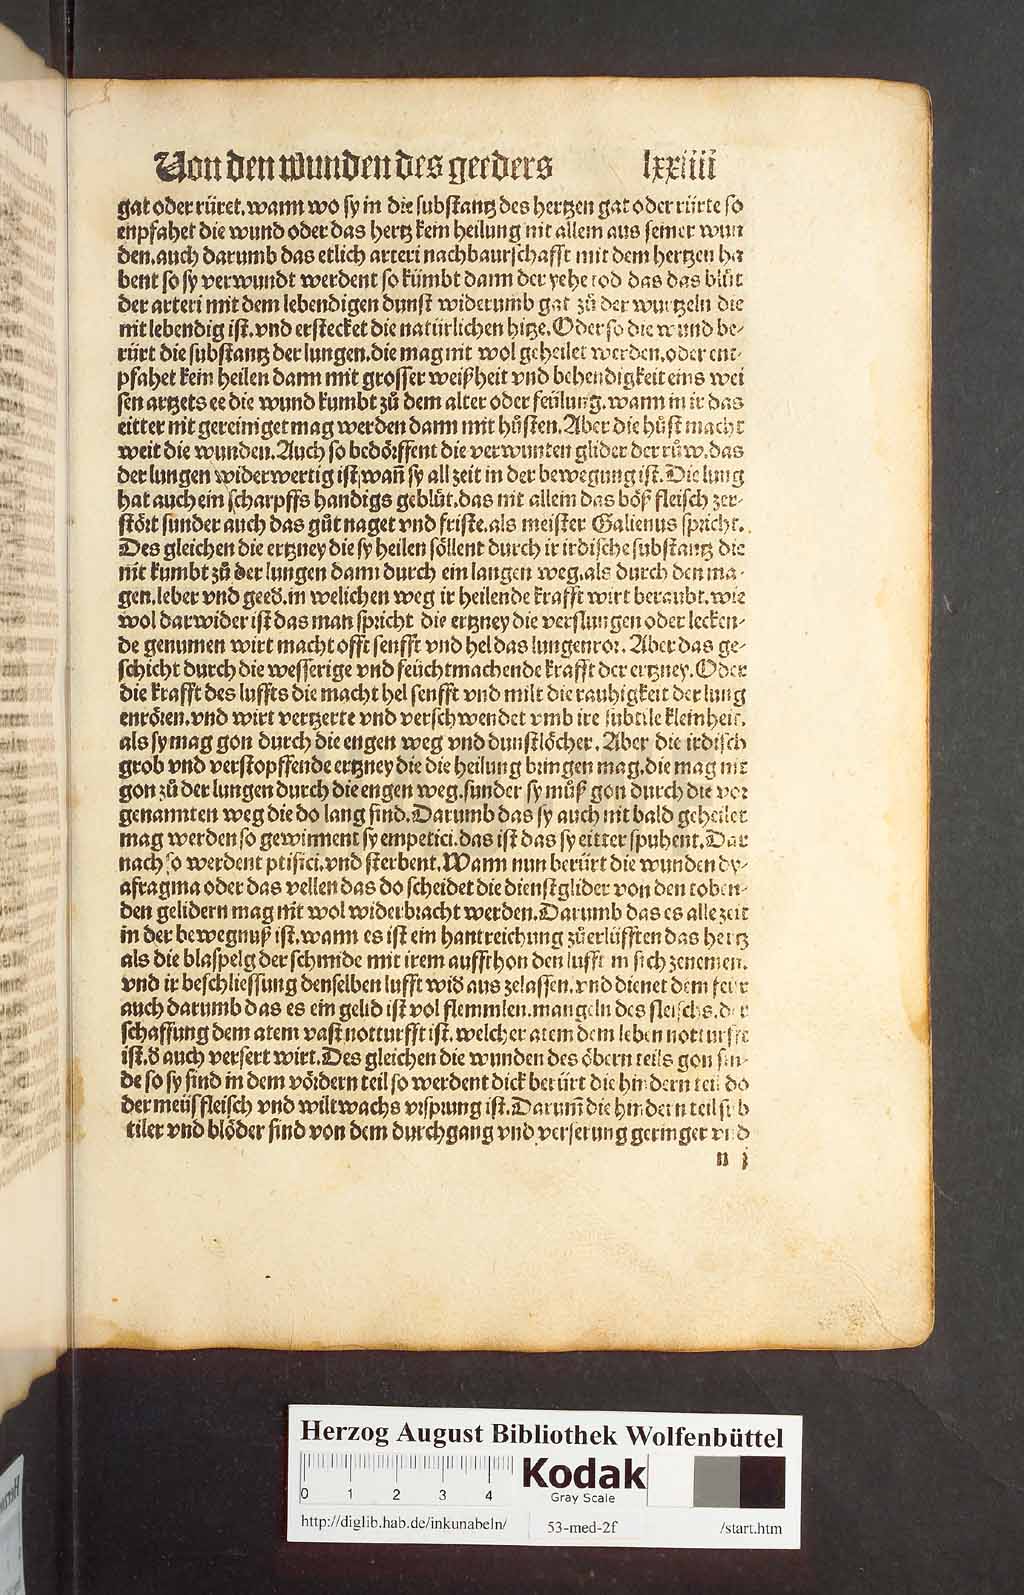 Von den wunden des geeders lxxiiii
gat oder rüret. wann wo sy in die substantz des hertzen gat oder rürte so
enpfahet die wund oder das hertz kein heilung nit allein aus seiner wun
den. auch darumb das etlich arteri nachbaurschafft mit dem hertzen ha
bent so sy verwundt werdent so kümbt dann der yehe tod das das blůt
der arteri mit dem lebendigen dunst widerumb gat zů der wurtzeln die
nit lebendig ist. vnd erstecket die natürlichen hitze. Oder so die wund be-
rürt die substantz der lungen. die mag nit wol geheilet werden. oder ent-
pfahet kein heilen dann mit grosser weißheit vnd behendigkeit eins wei
sen artzets ee die wund kumbt zů dem alter oder feülung. wann in ir das
eitter nit gereiniget mag werden dann mit hůsten. Aber die hůst macht
weit die wunden. Auch so bedörffent die verwunten glider der růw. das
der lungen widerwertig ist wañ sy all zeit in der bewegung ist. Die lung
hat auch ein scharpffs handigs geblůt. das nit allein das böß fleisch zer-
stört sunder auch das gůt naget vnd friste. als meister Galienus spricht.
Des gleichen die ertzney die sy heilen söllent durch ir irdische substantz die
nit kumbt zů der lungen dann durch ein langen weg. als durch den ma-
gen. leber vnd geed̕. in welichen weg ir heilende krafft wirt beraubt. wie
wol darwider ist das man spricht die ertzney die verslungen oder lecken-
de genumen wirt macht offt senfft vnd hel das lungenror. Aber das ge-
schicht durch die wesserige vnd feüchtmachende krafft der ertzney. Oder
die krafft des luffts die macht hel senfft vnd milt die rauhigkeit der lung
enrören. vnd wirt vertzerte vnd verschwendet vmb ire subtile kleinheit.
als sy mag gon durch die engen weg vnd dunstlöcher. Aber die irdisch
grob vnd verstopffende ertzney die die heilung bringen mag. die mag nit
gon zů der lungen durch die engen weg. sunder sy můß gon durch die vor
genannten weg die do lang sind. Darumb das sy auch nit bald geheilet
mag werden so gewinnent sy empetici. das ist das sy eitter spuhent. Dar
nach so werdent ptisici. vnd sterbent. Wann nun berürt die wunden dy-
afragma oder das vellen das do scheidet die dienstglider von den toben-
den gelidern mag nit wol widerbracht werden. Darumb das es alle zeit
in der bewegnuß ist. wann es ist ein hantreichung zů erlüfften das hertz
als die blaspelg der schmide mit irem auffthon den lufft in sich zenemen.
vnd ir beschliessung denselben lufft wid̕ aus zelassen. vnd dienet dem
auch darumb das es ein gelid ist vol flemmlen. mangeln des fleischs. der
schaffung dem atem vast notturfft ist. welcher atem dem leben notturfft
ist. d̕ auch versert wirt. Des gleichen die wunden des öbern teils gon sin-
de so sy sind in dem vördern teil so werdent dick berürt die hindern teil do
der meüsfleisch vnd wiltwachs vrsprung ist. Darum̄ die hindern teil sub
tiler vnd blöder sind von dem durchgang vnd verserung geringer vnd
n j
Herzog August Bibliothek Wolfenbüttel
0 1 2 3 4
Kodak
Gray Scale
http://diglib.hab.de/inkunabeln/ 53-med-2f /start.htm